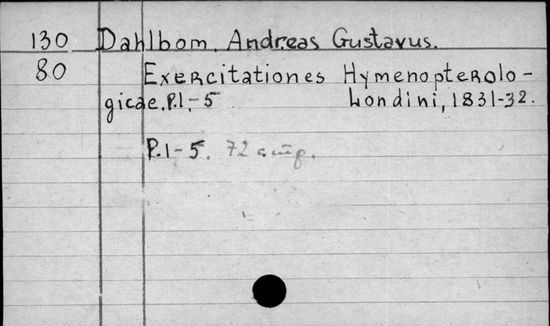 130 Dahlbom, Andreas Gustavus.
80 Exercitationes Hymenopterolo-
gicae. P.1,-5 Londini, 1831-32.
P.1-5. 72 стр.